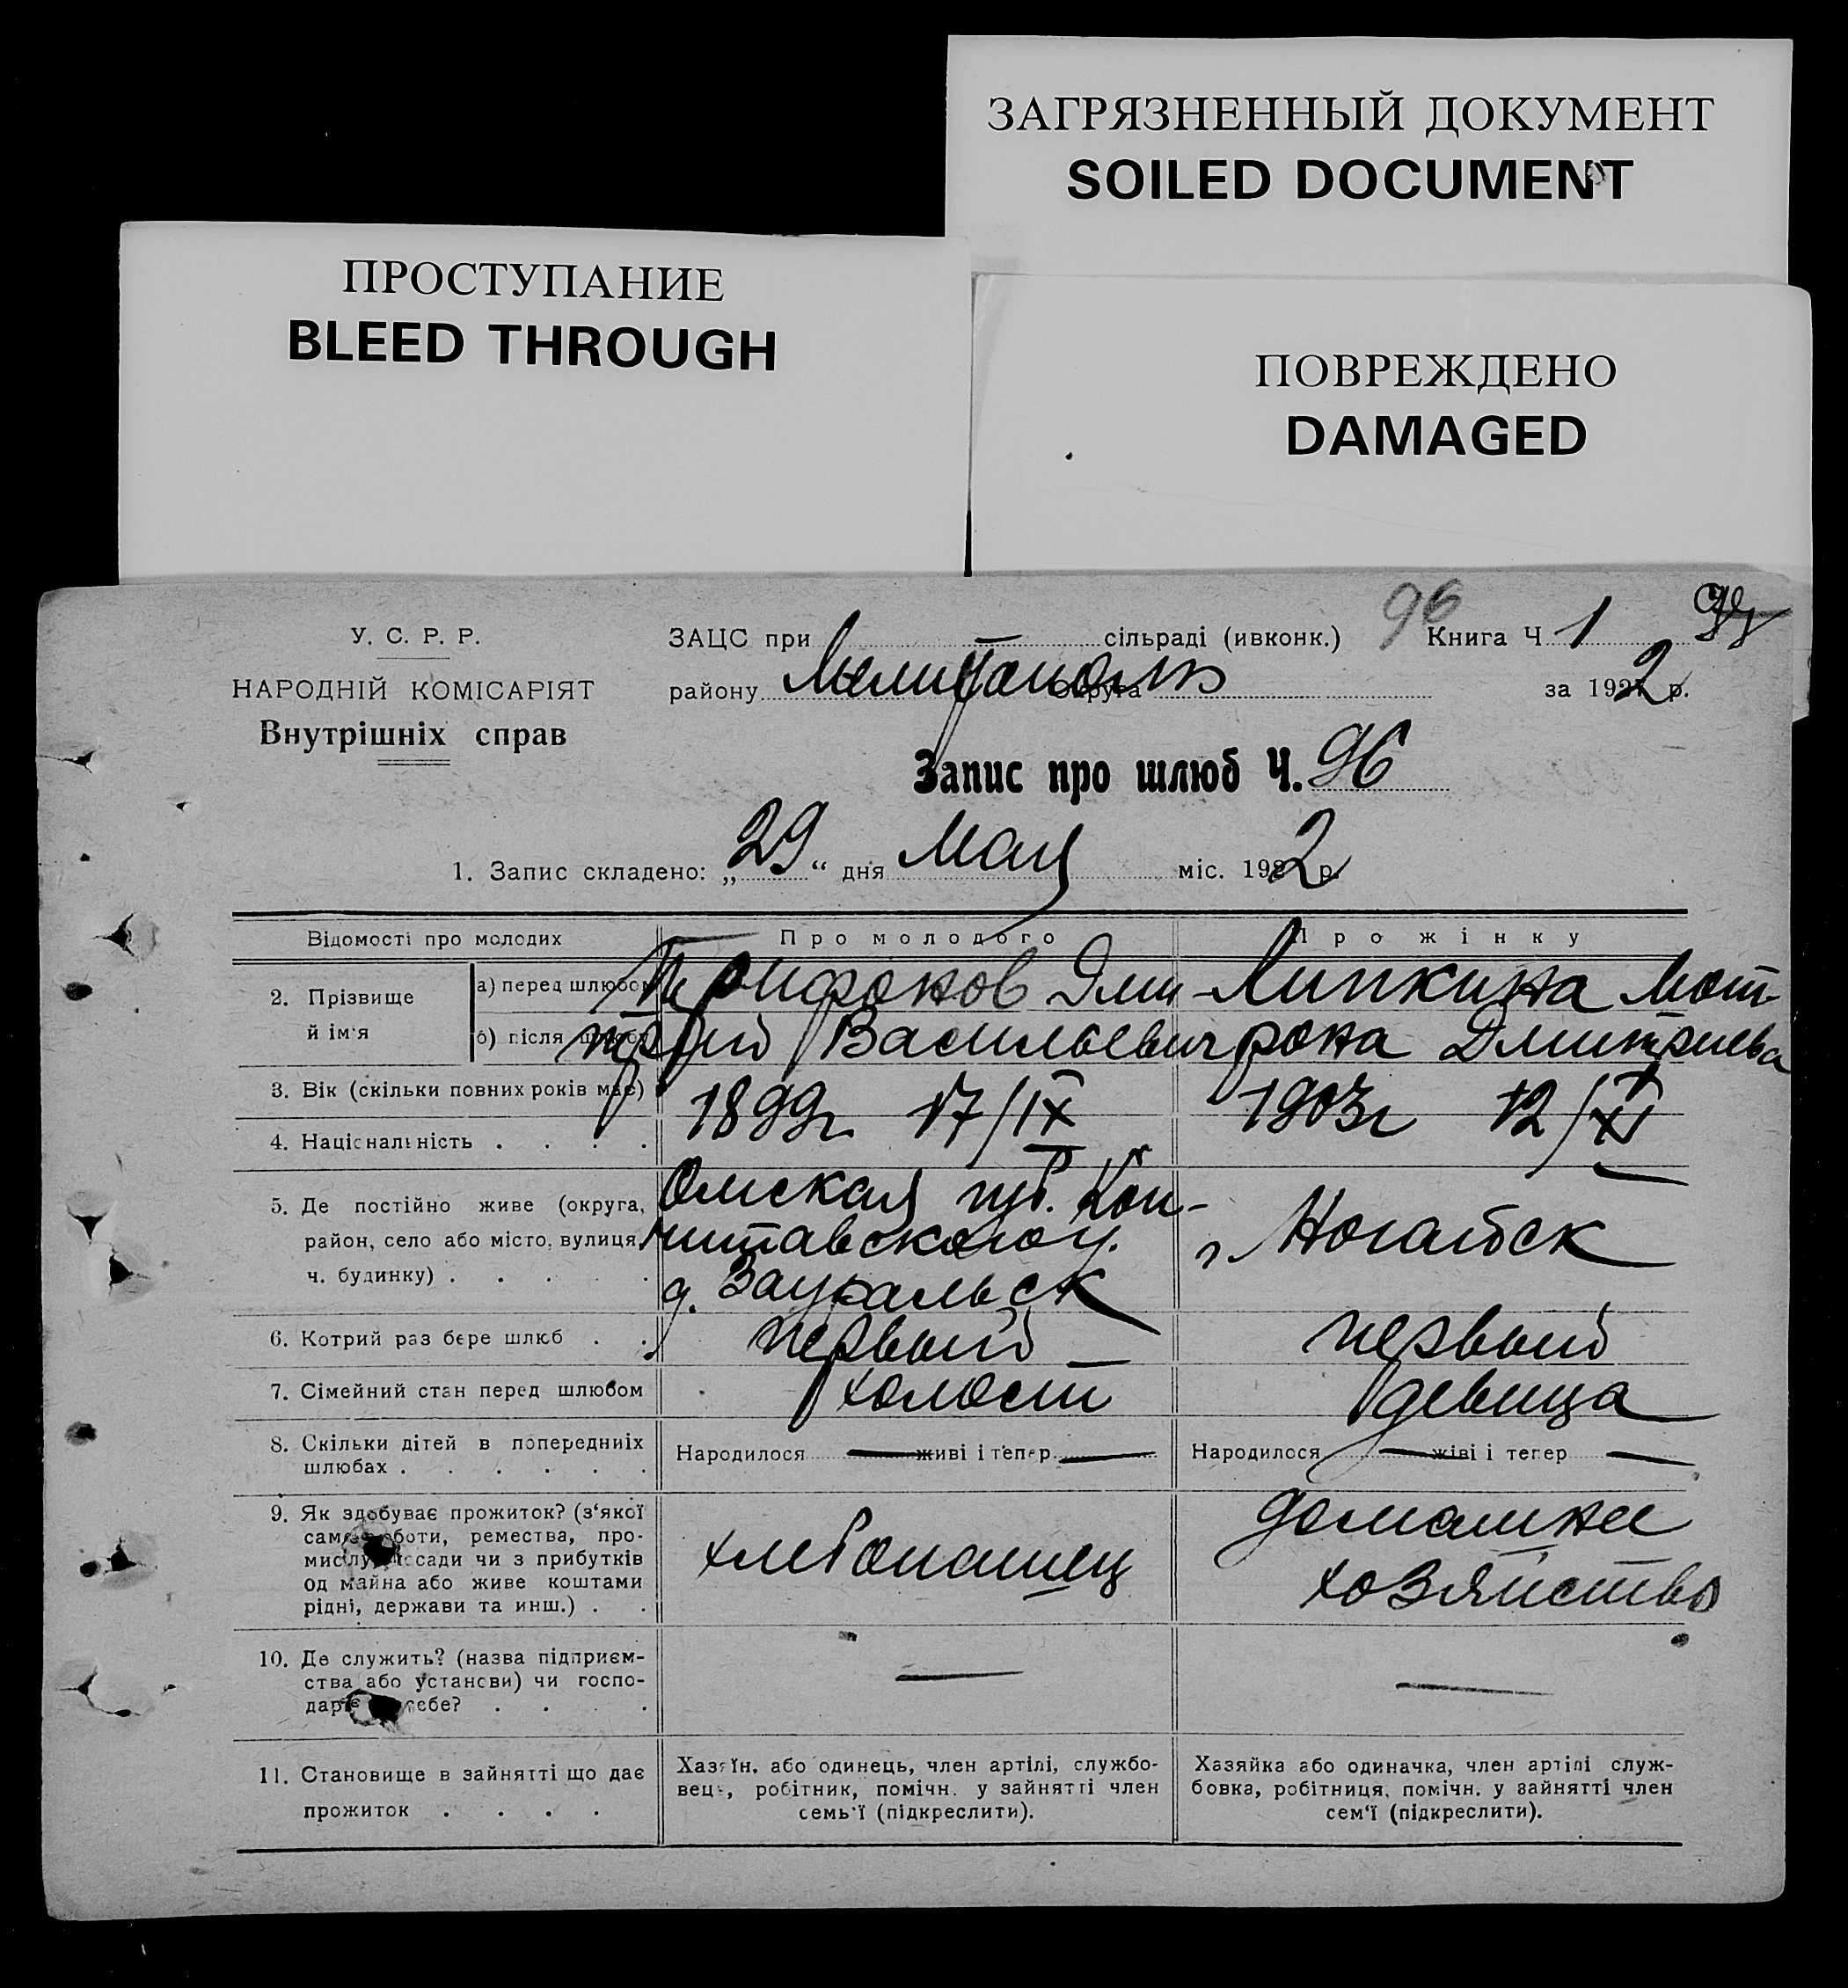 ЗАГРЯЗНЕННЫЙ ДОКУМЕНТ
SOILED DOCUMENT
ПРОСТУПАНИЕ
BLEED THROUGH
ПОВРЕЖДЕНО
DAMAGED
У. С. Р. Р.
НАРОДНІЙ КОМІСАРІЯТ
Внутрішніх справ
ЗАЦС при — сільраді (ивконк.)
96
Книга Ч 1
району Мелитополь округа
за 192 2 р.
Запис про шлюб Ч. 96
1. Запис складено: „29“ дня Мая міс. 192 2 р.
Відомості про молодих Про молодого Про жінку
2. Прізвище й ім'я
а) перед шлюбом
б) після шлюбу
Трифонов Дми-
трий Васильевич
Липкина Мот-
рона Дмитриева
3. Вік (скільки повних років має)
1899г. 17/IX
1903г 12/XI
4. Національність . . . .
5. Де постійно живе (округа,
район, село або місто, вулиця,
ч. будинку) . . . . .
Омская губ. Кок-
читавского у.
д. Зауральск
г. Ногайск
6. Котрий раз бере шлюб . . первый — первый
7. Сімейний стан перед шлюбом холост девица
8. Скільки дітей в попередніх
шлюбах . . . . . .
Народилося — живі і тепер —
Народилося — живі і тепер —
9. Як здобуває прожиток? (з'якої
саме роботи, ремества, про-
мислу, посади чи з прибутків
од майна або живе коштами
рідні, держави та инш.) . .
хлебопашец
домашнее
хозяйство
10. Де служить? (назва підприєм-
ства або установи) чи госпо-
дарує у себе? . . . .
—
—
11. Становище в зайнятті що дає
прожиток . . . .
Хазяїн, або одинець, член артілі, службо-
вець, робітник, помічн. у зайнятті член
семь'ї (підкреслити).
Хазяйка або одиначка, член артілі служ-
бовка, робітниця, помічн. у зайнятті член
сем'ї (підкреслити).